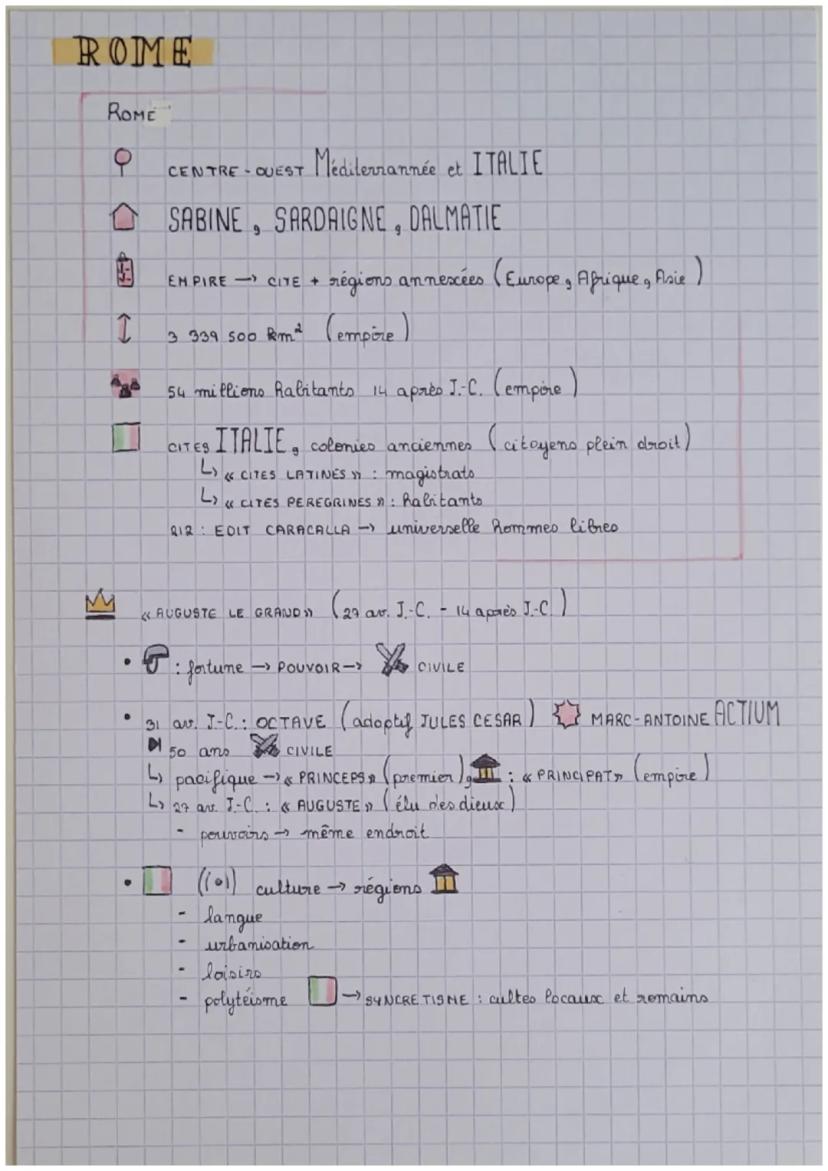 ROME
ROME
CENTRE-OUEST Méditerrannée et ITALIE
SABINE, SARDAIGNE, DALMATIE
EMPIRE → CITE + régions annexées (Europe, Afrique, Asie)
3 339 500 km² (empire)
54 millions habitants 14 après J.-C. (empire)
CITES ITALIE, colonies anciennes (citoyens plein droit)
↳ « CITES LATINES » : magistrats
↳ « CITES PEREGRINES » : habitants
212 : EDIT CARACALLA → universelle hommes libres
« AUGUSTE LE GRAND » (27 av. J.-C. - 14 après J.-C.)
• : fortune → POUVOIR → CIVILE
• 31 av. J-C. : OCTAVE (adoptif JULES CESAR) MARC-ANTOINE ACTIUM
50 ans CIVILE
↳ pacifique → « PRINCEPS » (premier), : « PRINCIPAT » (empire)
↳ 27 av. J-C. : « AUGUSTE » (élu des dieux)
- pouvoirs → même endroit
• culture → régions
- langue
- urbanisation
- loisirs
- polytéisme → SYNCRETISME : cultes locaux et romains